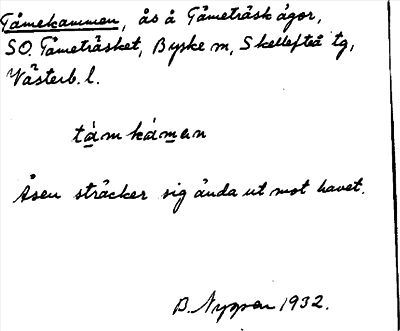 Tåmekammen, ås å Tåmeträsk ägor,
SO. Tåmeträsket, Byske m, Skellefteå tg,
Västerb. l.
támkámen
Åsen sträcker sig ända ut mot havet.
B. Nygren 1932.